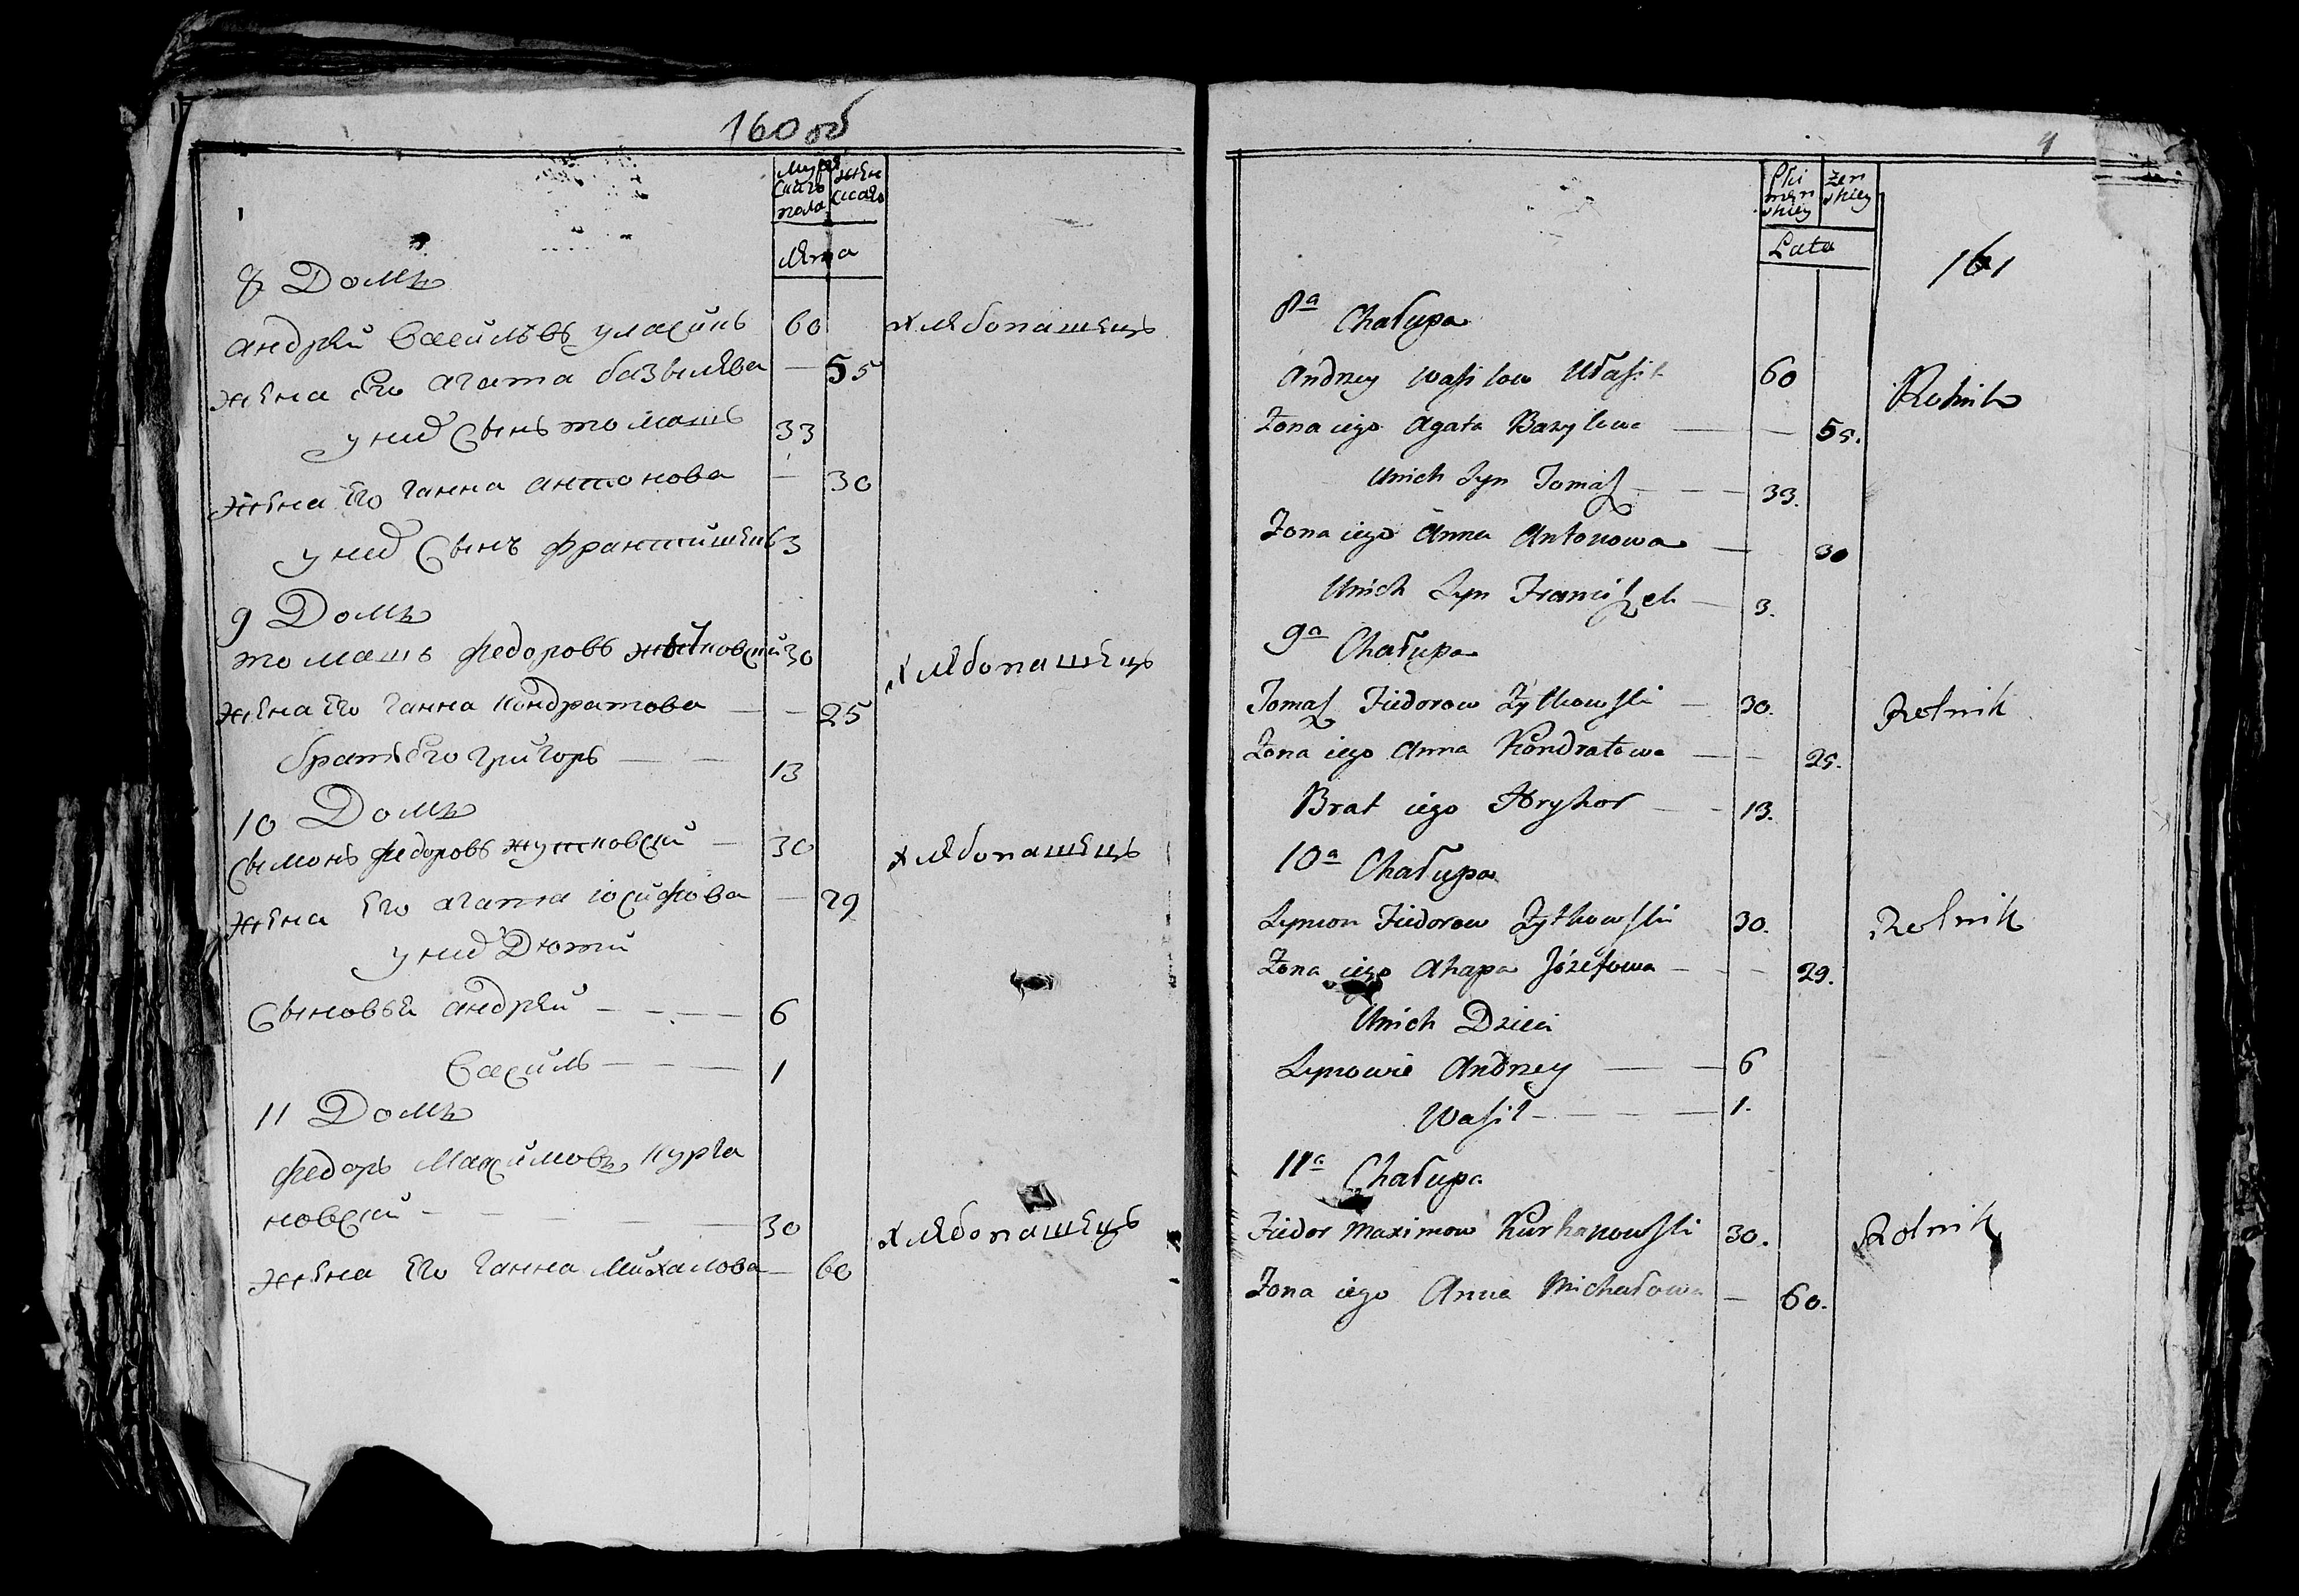 160 об
Мужескаго пола
женскаго
Лѣта
8 Домъ
андрѣй василѣвъ уласикъ 60 хлѣбопашецъ
жена Его агата базылѣва — 55
у них Сынъ томашъ 33
жена Его ганна антонова — 30
у них Сынъ франтишекъ 3
9 Домъ
томашъ федоровъ жытковский 30 хлѣбопашецъ
жена Его ганна кондратова — — 25
братъ Его григоръ — — 13
10 Домъ
Сымонъ федоровъ жутковский — 30 хлѣбопашецъ
жена Его агапа іосифова — 29
у них Дѣти
Сыновья андрѣй — — — — 6
василь — — — 1
11 Домъ
федоръ Максимовъ курга
новский — — — — — 30 хлѣбопашецъ
жена Его ганна Михалова — 60
4
Płci męnskiey
żenskiey
Lata
161
8a Chałupa
Andrzey Wasilow Ułasik 60 Rolnik
Żona iego Agata Bazylowa — — 55.
Unich Syn Tomasz — — — 33.
Żona iego Anna Antonowa — 30
Unich Syn Franciszek — 3.
9a Chałupa
Tomasz Fiedorow Żytkowski — 30. Rolnik
Żona iego Anna Kondratowa — — 25.
Brat iego Hryhor — — 13.
10a Chałupa
Symon Fiedorow Żytkowski 30. Rolnik
Żona iego Ahapa Józefowa — — — 29.
Unich Dzieci
Synowie Andrzey — — 6
Wasil — — — — 1.
11a Chałupa
Fiedor Maximow Kurhanowski 30. Rolnik
Żona iego Anna Michałowa — 60.